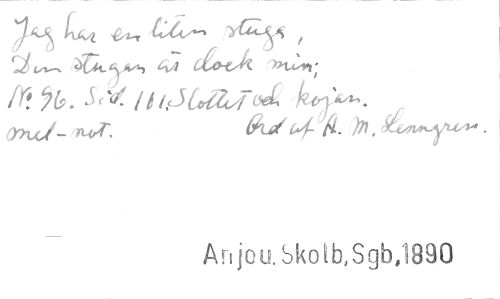 Jag har en liten stuga,
Den stugan är dock min;
No. 96. Sid. 101. Slottet och kojan.
mel-not. Ord af A. M. Lenngren.
Anjou. Skolb, Sgb, 1890